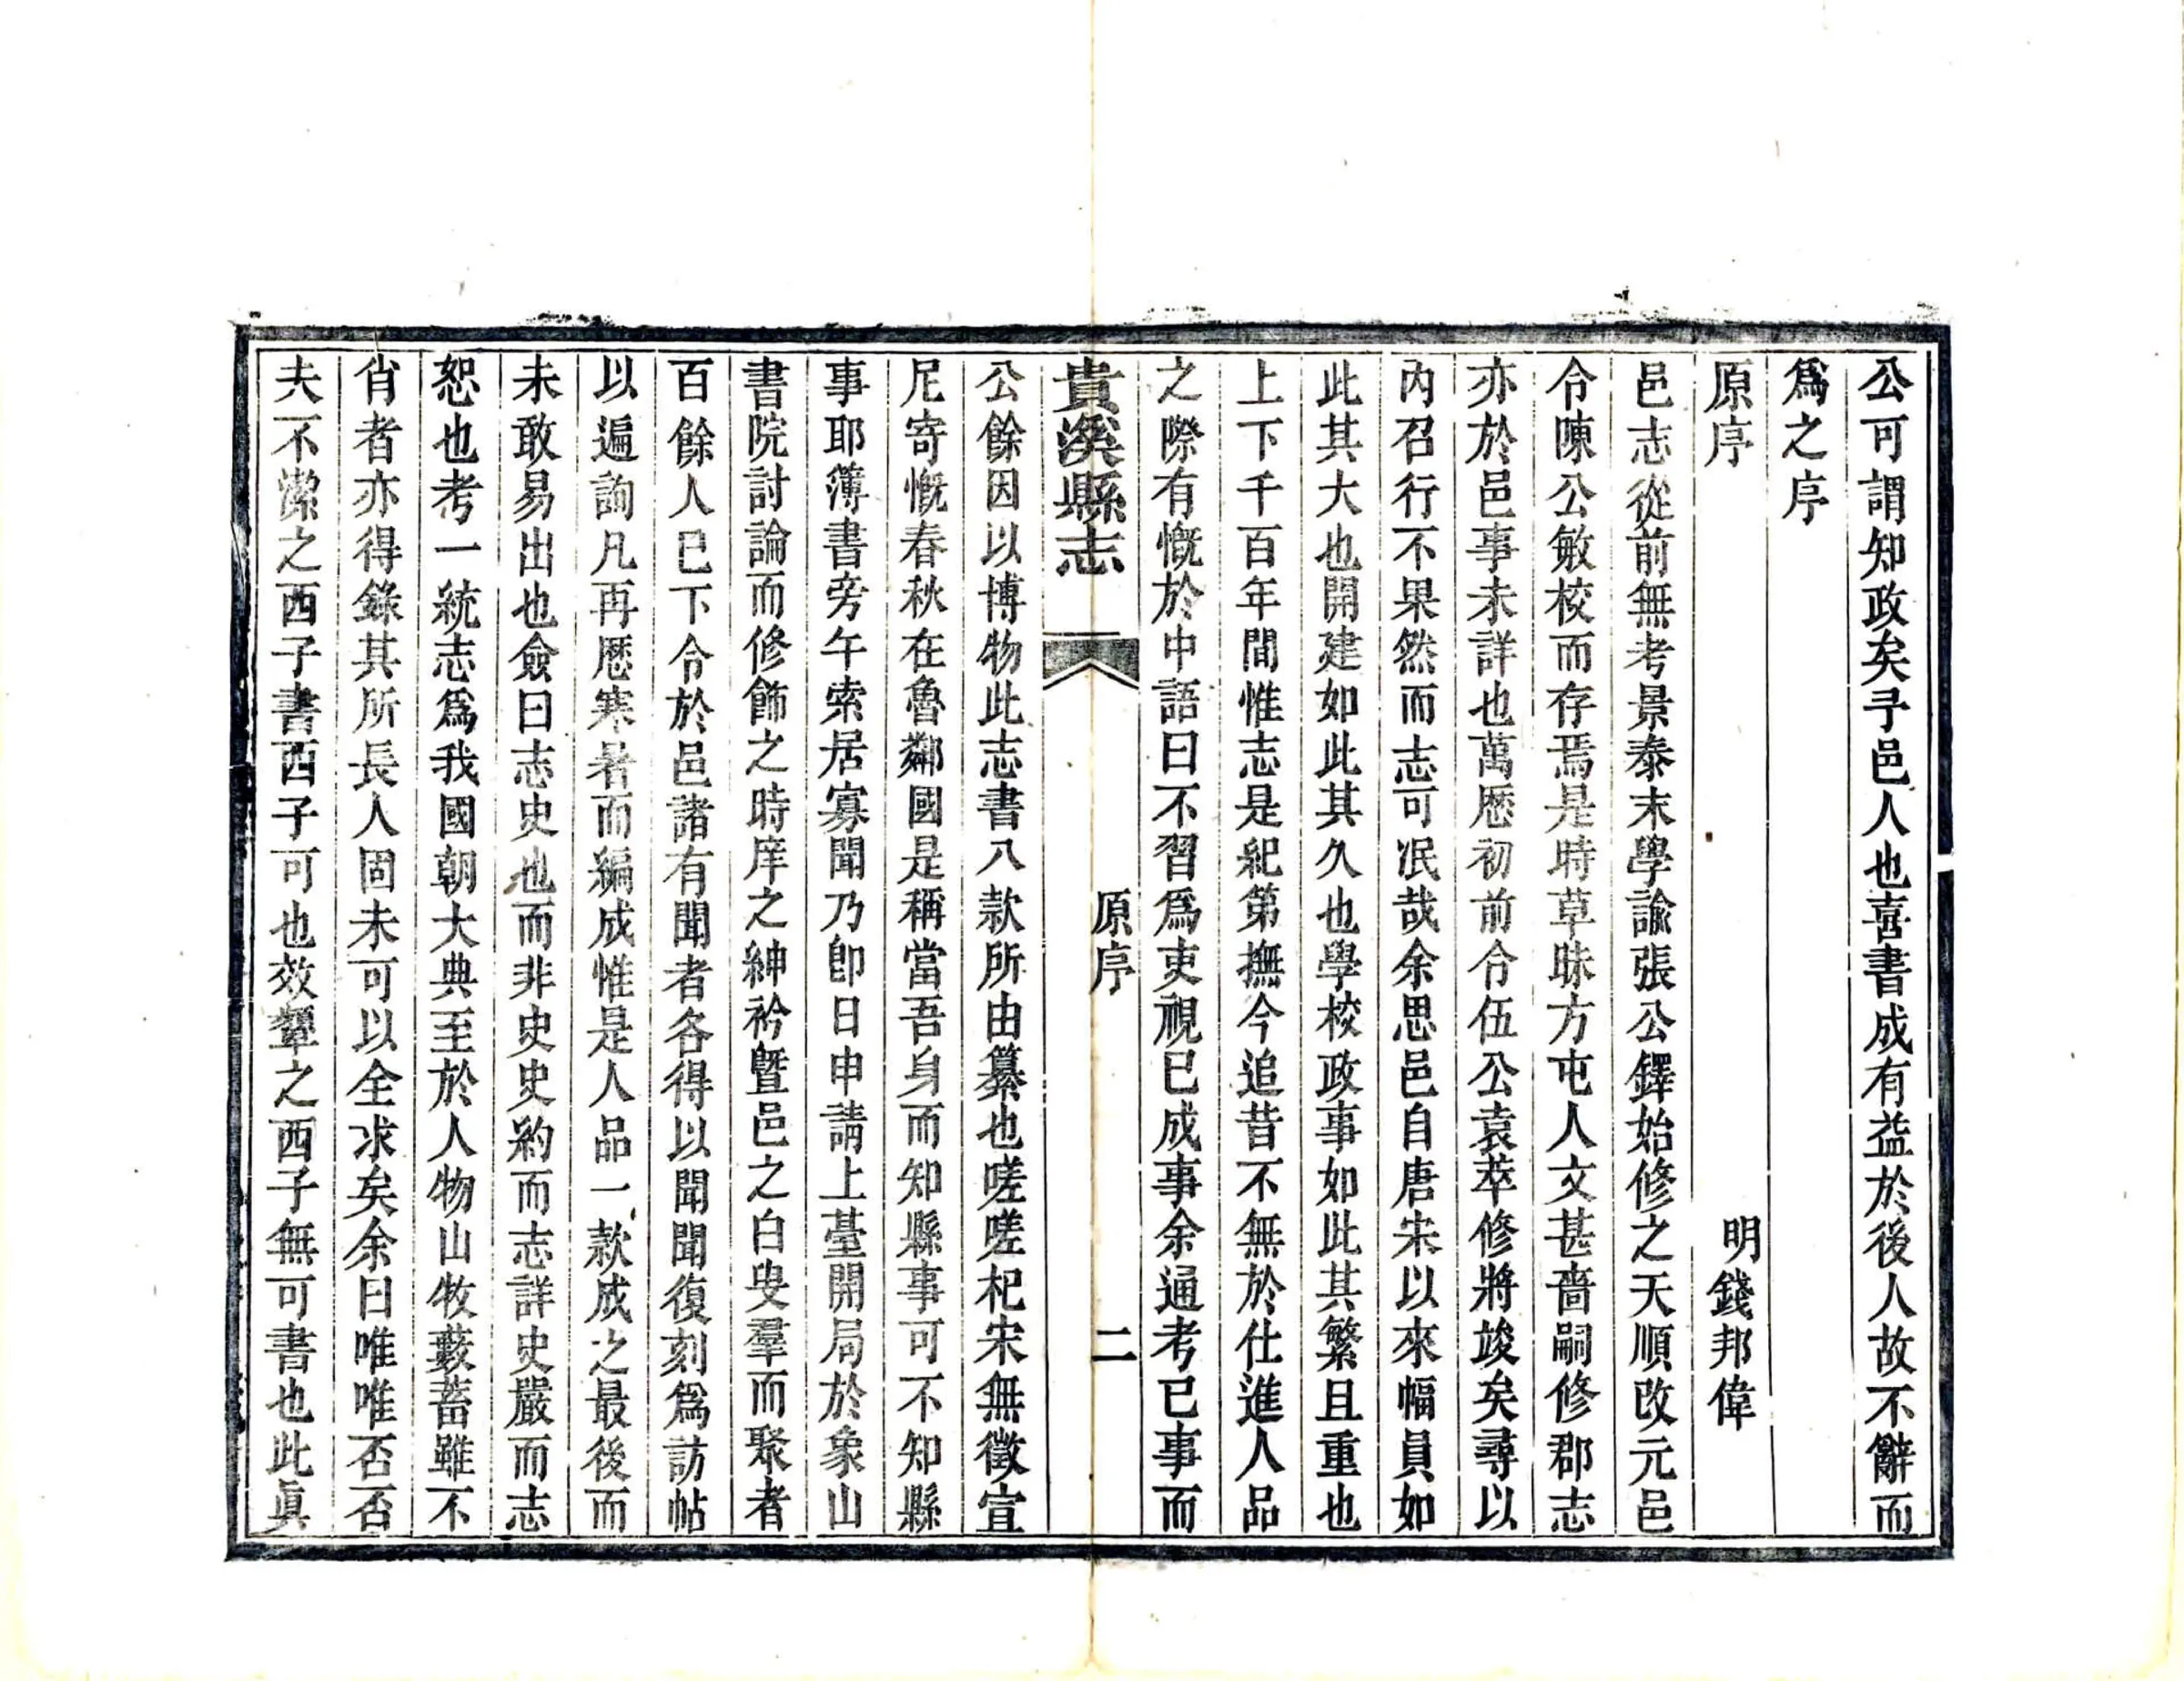 公可謂知政矣予邑人也喜書成有益於後人故不辭而
爲之序
原序
明錢邦偉
邑志從前無考景泰末學諭張公鐸始修之天順改元邑
令陳公敏校而存焉是時草昧方屯人文甚嗇嗣修郡志
亦於邑事未詳也萬厯初前令伍公袁萃修將竣矣尋以
內召行不果然而志可泯哉余思邑自唐宋以來幅員如
此其大也開建如此其久也學校政事如此其繁且重也
上下千百年間惟志是紀第撫今追昔不無於仕進人品
之際有慨於中語曰不習爲吏視已成事余通考已事而
貴溪縣志
原序
二
公餘因以博物此志書八款所由纂也嗟嗟杞宋無徵宣
尼寄慨春秋在魯鄰國是稱當吾身而知縣事可不知縣
事耶簿書旁午索居寡聞乃卽日申請上臺開局於象山
書院討論而修飾之時庠之紳衿曁邑之白叟羣而聚者
百餘人已下令於邑諸有聞者各得以聞聞復刻爲訪帖
以遍詢凡再厯寒暑而編成惟是人品一款成之最後而
未敢易出也僉曰志史也而非史史約而志詳史嚴而志
恕也考一統志爲我國朝大典至於人物山牧藪蓄雖不
肖者亦得錄其所長人固未可以全求矣余曰唯唯否否
夫不潔之西子書西子可也效顰之西子無可書也此眞